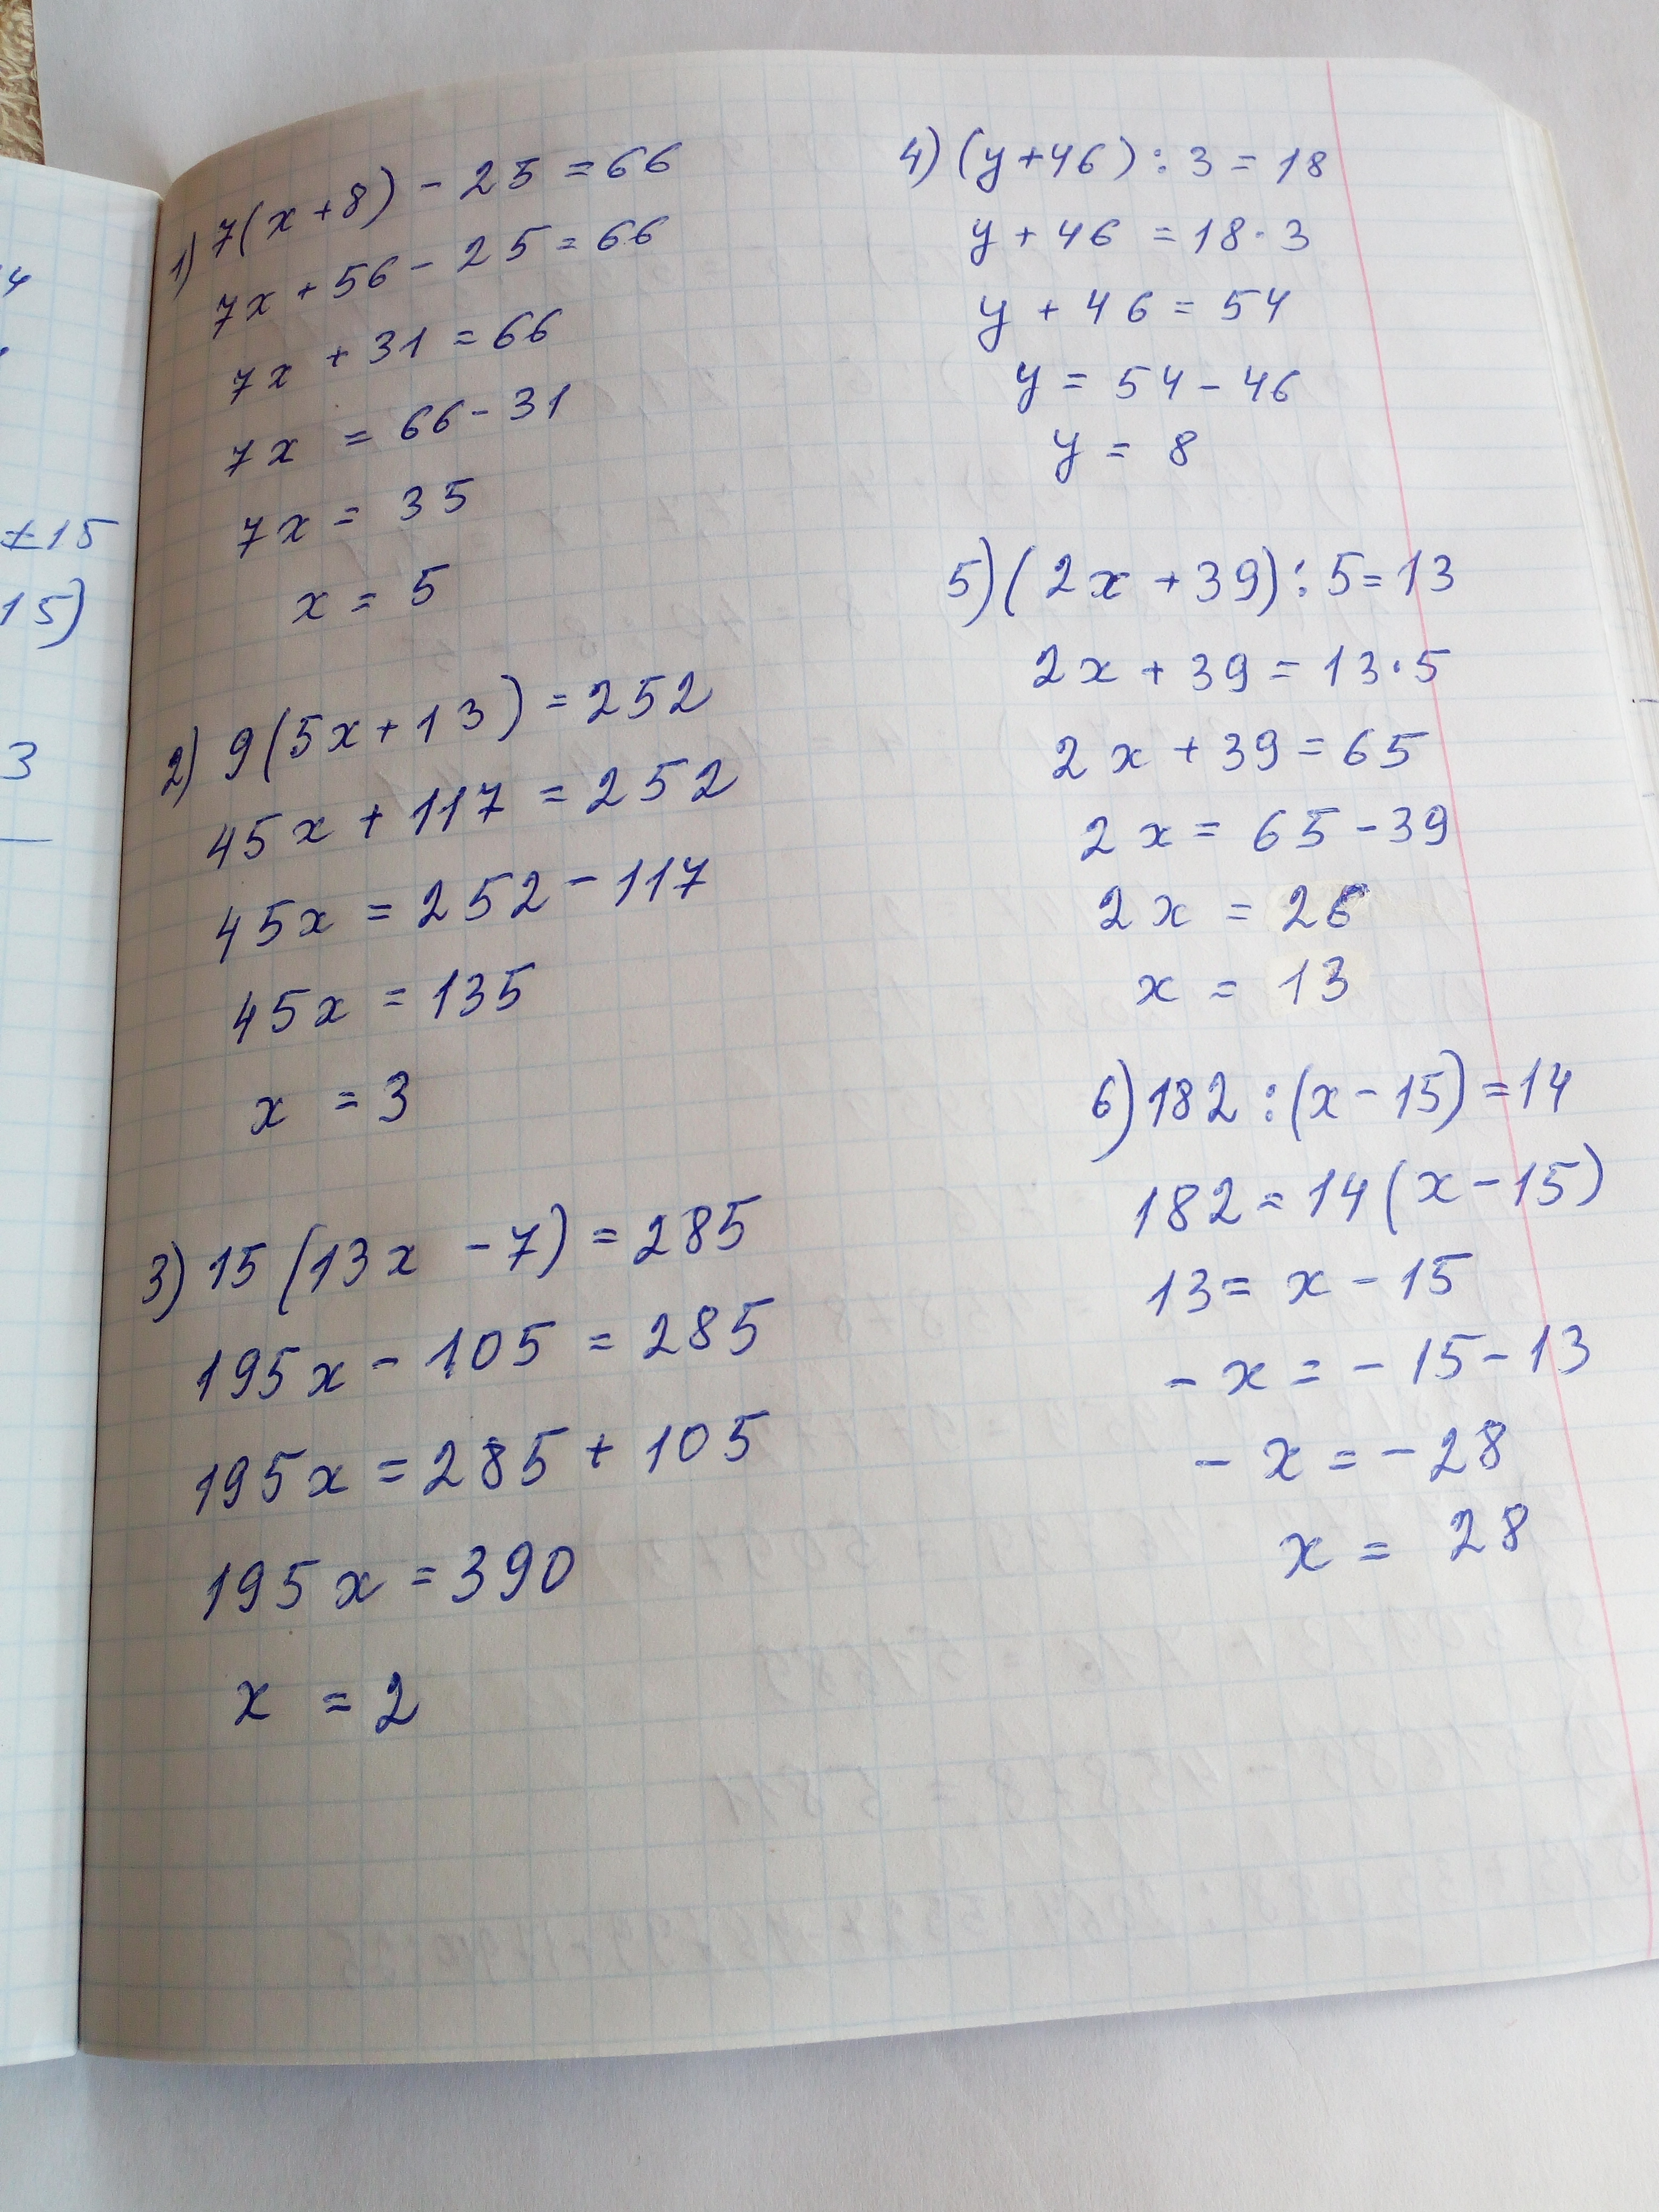 1) 7(x+8) - 25 = 66
7x + 56 - 25 = 66
7x + 31 = 66
7x = 66 - 31
7x = 35
x = 5
2) 9(5x+13) = 252
45x + 117 = 252
45x = 252 - 117
45x = 135
x = 3
3) 15(13x - 7) = 285
195x - 105 = 285
195x = 285 + 105
195x = 390
x = 2
4) (y+46) : 3 = 18
y + 46 = 18 · 3
y + 46 = 54
y = 54 - 46
y = 8
5) (2x + 39) : 5 = 13
2x + 39 = 13 · 5
2x + 39 = 65
2x = 65 - 39
2x = 26
x = 13
6) 182 : (x - 15) = 14
182 = 14(x - 15)
13 = x - 15
- x = - 15 - 13
- x = - 28
x = 28
4
±15
15)
3